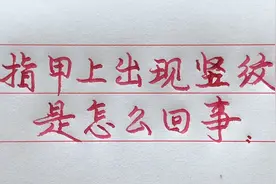 指甲上出现竖纹
是怎么回事.